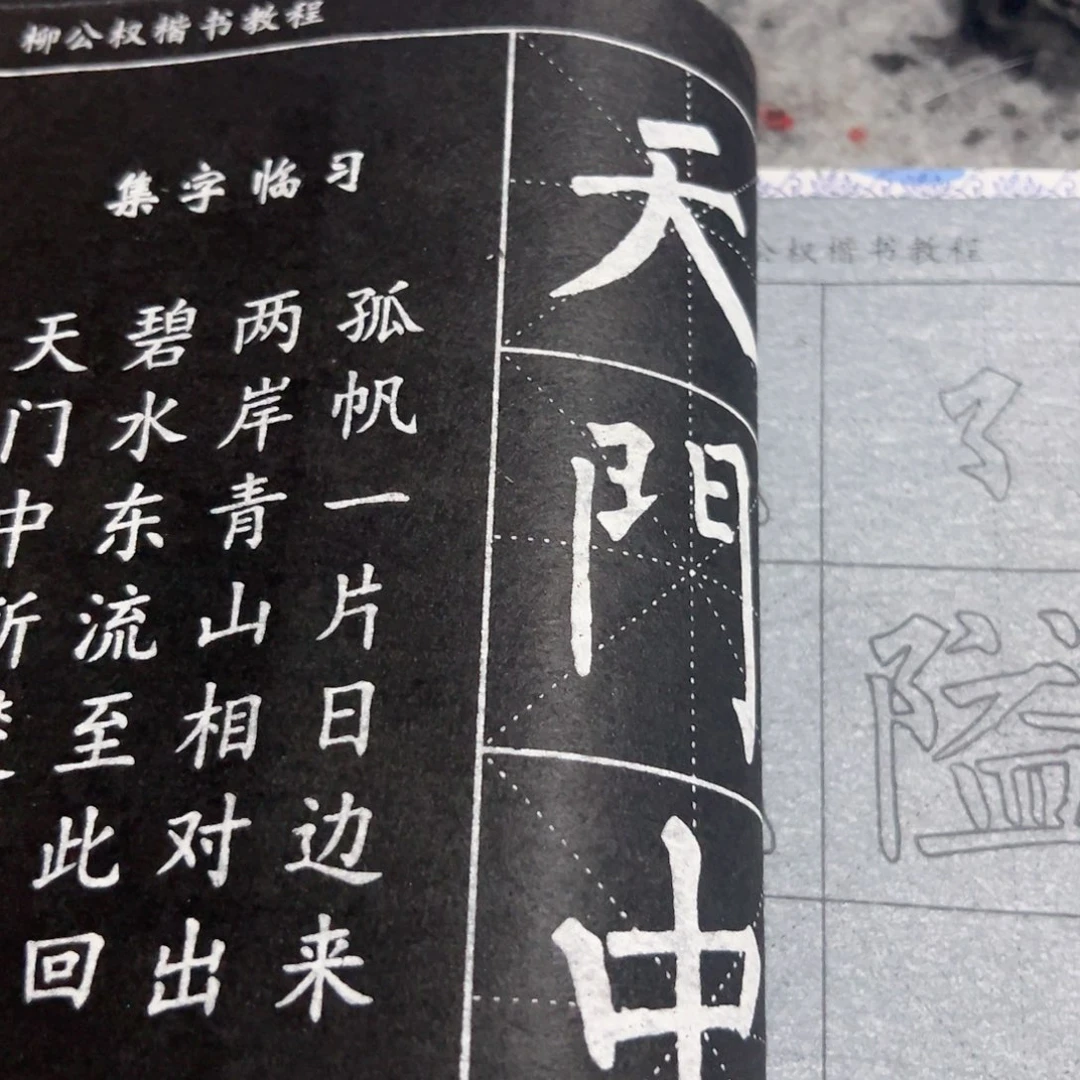 柳公权楷书教程
集字临习
天门中
碧水东流至此回
两岸青山相对出
孤帆一片日边来
天門中
公权楷书教程
隘